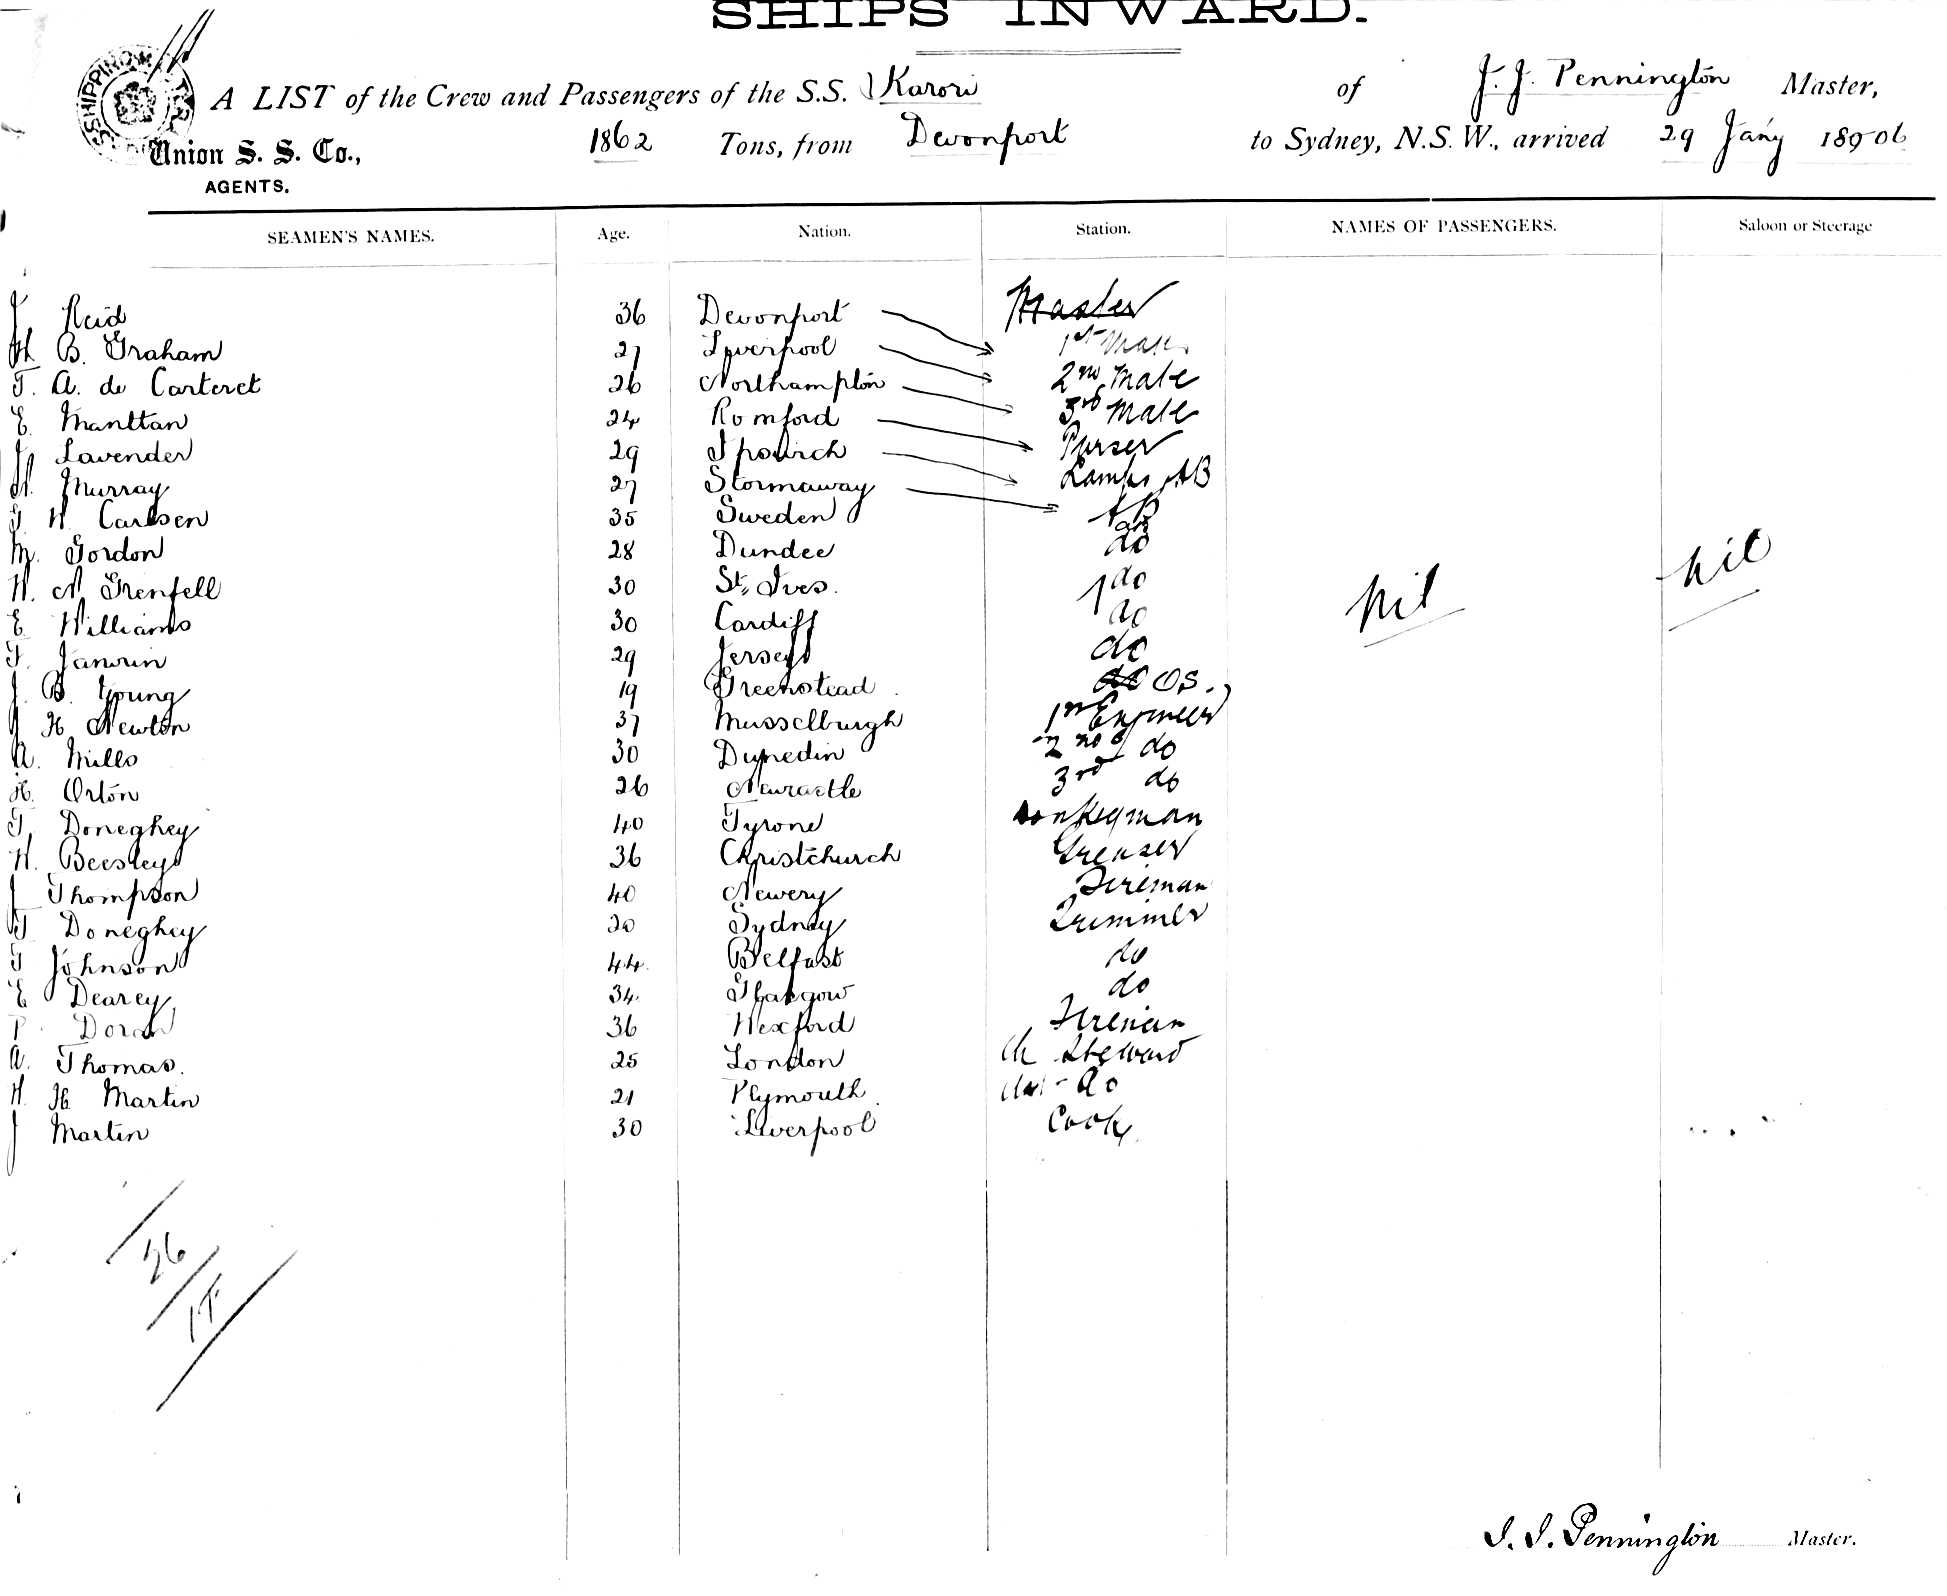 SHIPS INWARD.
A LIST of the Crew and Passengers of the S.S. Karori of J. J. Pennington Master,
Union S. S. Co., 1862 Tons, from Devonport to Sydney, N.S.W., arrived 29 Jany 18906
AGENTS.
SEAMEN'S NAMES. Age. Nation. Station. NAMES OF PASSENGERS. Saloon or Steerage
J Reid 36 Devonport Master
H B. Graham 27 Liverpool 1st Mate
T. A. de Carteret 26 Northampton 2nd Mate
E. Manttan 24 Romford 3rd Mate
J. Lavender 29 Ipswich Purser
A. Murray 27 Stornaway Lamps AB
G W Carlsen 35 Sweden AB
M. Gordon 28 Dundee do
W. A Grenfell 30 St. Ives. do nil nil
E Williams 30 Cardiff do
F. Janvrin 29 Jersey do
J. B. Young 19 Greenstead do OS.
J H Newton 37 Musselburgh 1st Engineer
A. Mills 30 Dunedin 2nd do
H. Orton 26 Newcastle 3rd do
T. Doneghey 40 Tyrone Donkeyman
W. Beesley 36 Christchurch Greaser
J Thompson 40 Newery Fireman
T Doneghey 20 Sydney Trimmer
T Johnson 44 Belfast do
E Dearey 34 Glasgow do
P Doran 36 Wexford Fireman
A. Thomas. 25 London Ch Steward
W. H Martin 21 Plymouth Asst do
J Martin 30 Liverpool Cook
26
J. J. Pennington Master.